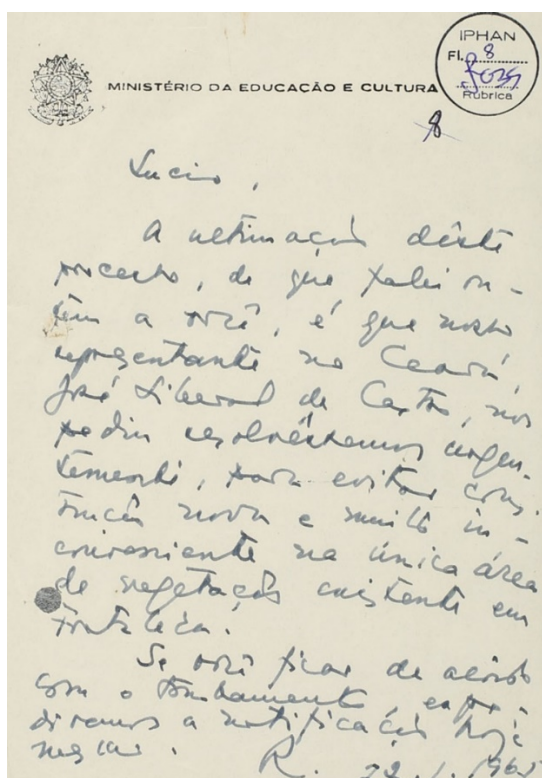 IPHAN
Fl. 8
Rubrica
MINISTÉRIO DA EDUCAÇÃO E CULTURA
8
Lucio,
A ultimação dêste
processo, de que falei on-
tem a você, é que nosso
representante no Ceará,
José Liberal de Castro, nos
pediu resolvêssemos urgen-
temente, para evitar cons-
trução nova e muito in-
conveniente na única área
de vegetação existente em
Fortaleza.
Se você ficar de acôrdo
com o tombamento expe-
diremos a notificação hoje
mesmo.
R. 22.1.1965